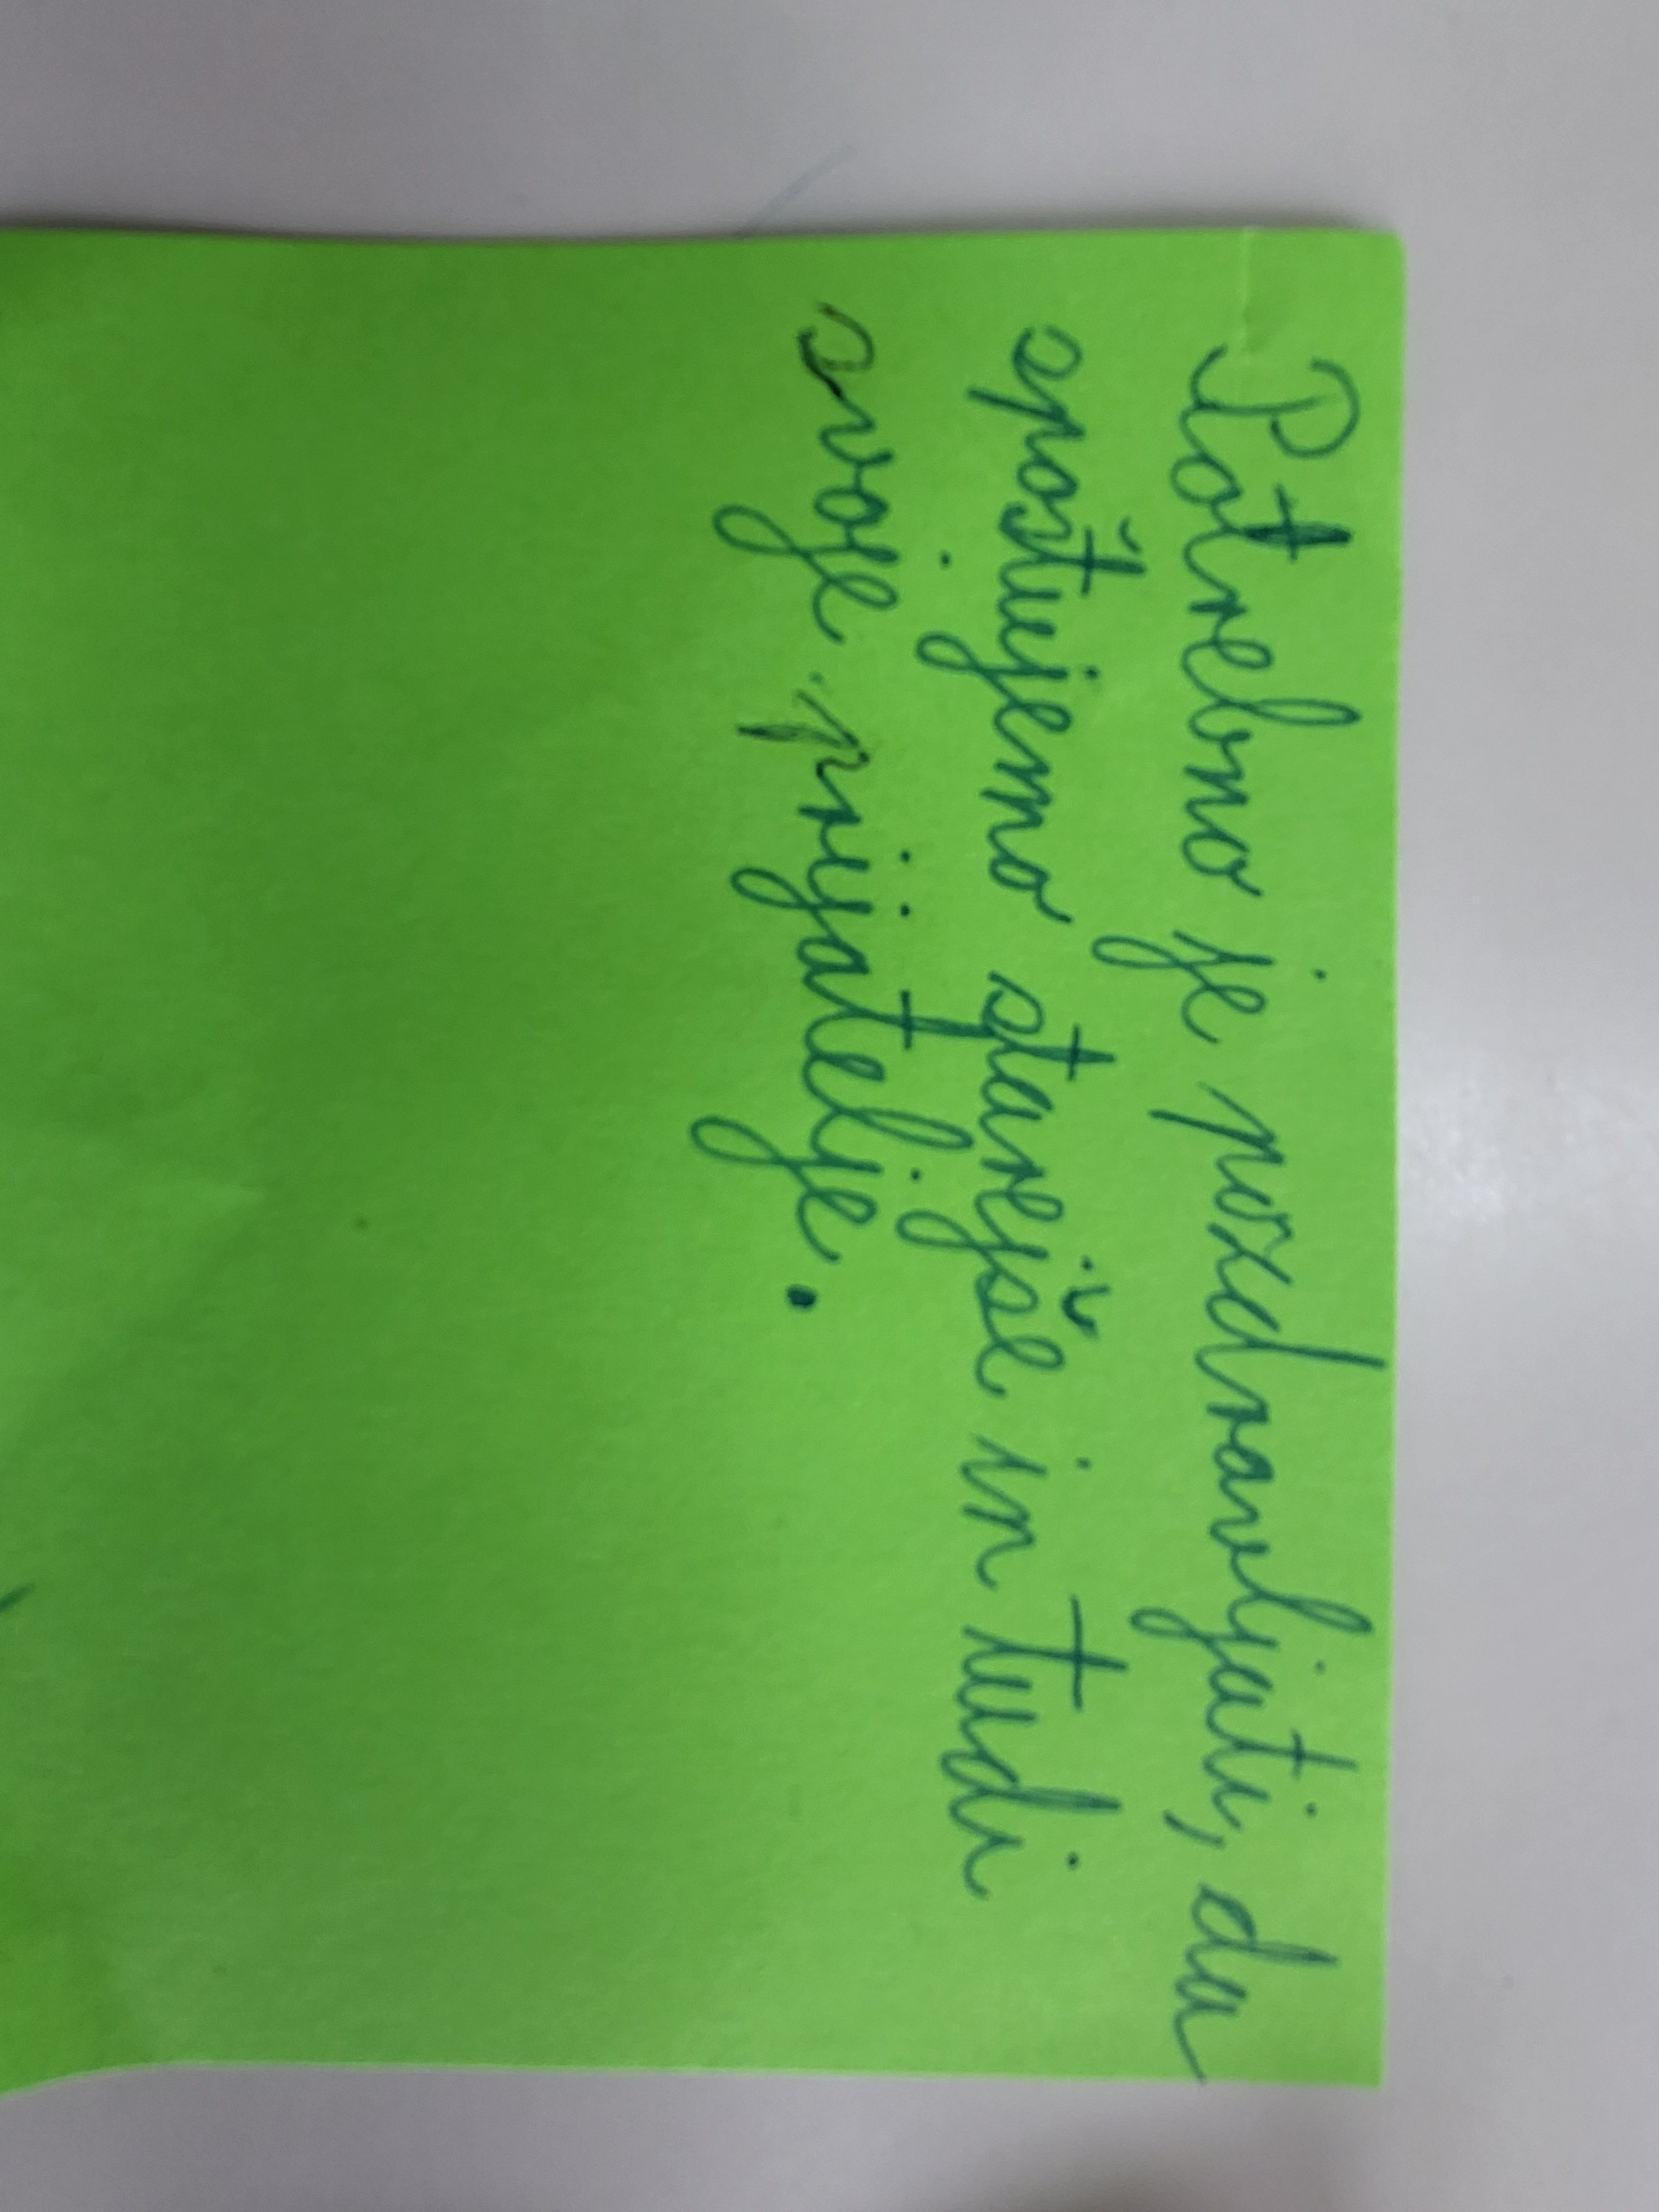 Potrebno je pozdravljati, da
spoštujemo starejše in tudi
svoje prijatelje.